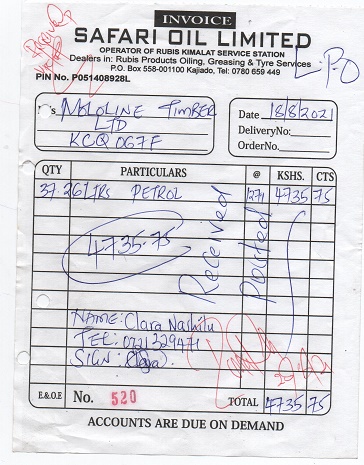 INVOICE
SAFARI OIL LIMITED
OPERATOR OF RUBIS KIMALAT SERVICE STATION
Dealers in: Rubis Products Oiling, Greasing & Tyre Services
P.O. Box 558-001100 Kajiado, Tel: 0780 659 449
PIN No. P051408928L
L.P.O
M/s MOLOLINE TIMBER
LTD
KCQ 067F
Date 18/8/2021
DeliveryNo:
OrderNo.
QTY PARTICULARS @ KSHS. CTS
37.26 Ltrs PETROL 127.1 4735 75
4735.75
Received
Posted
NAME: Clara Nashilu
TEL: 0721329471
SIGN:
E.&O.E No. 520 TOTAL 4735 75
ACCOUNTS ARE DUE ON DEMAND